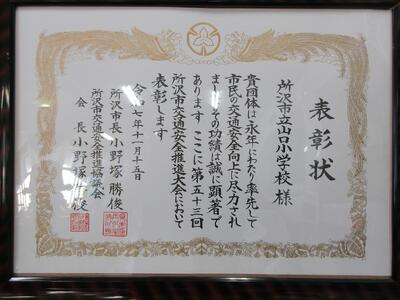 表彰状
所沢市立山口小学校様
貴団体は永年にわたり率先して
市民の交通安全向上に尽力され
ましたその功績は誠に顕著で
あります ここに第五十三回
所沢市交通安全推進大会において
表彰します
令和七年十一月十五日
所沢市長 小野塚勝俊
所沢市交通安全推進協議会
会長 小野塚勝俊